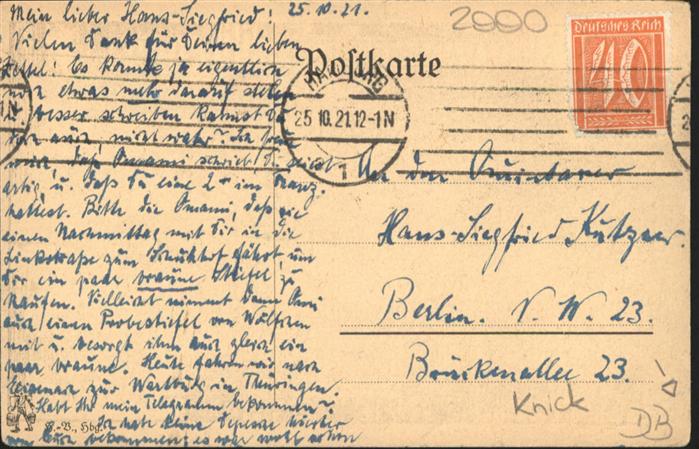 Mein lieber Hans-Siegfried! 25.10.21.
Vielen Dank für Deinen lieben
Zettel! Es konnte ja eigentlich
noch etwas mehr darauf stehen
besser schreiben kannst Du
doch auch, nicht wahr? Ich freue
mich, daß Omami schreibt Du seist
artig u. daß Du eine 2 im Franz.
hattest. Bitte die Omami, daß sie
einen Nachmittag mit Dir in die
Linkstraße zum fährt um
Dir ein paar braune Stiefel zu
kaufen. Vielleicht nimmt dann Omi
auch einen Probestiefel von
mit u. besorgt ihm auch gleich ein
paar braune. Heute fahren wir nach
Eisenach zur Wartburg in Thüringen.
Habt Ihr mein Telegramm bekommen?
Ich habe keine Depesche hierher
von Euch bekommen; es war wohl schon
2000
Deutsches Reich
40
Postkarte
25.10.21.12-1N
1
An den Quintaner
Hans-Siegfried Kutzner.
Berlin. N. W. 23.
Brückenallee 23.
Knick
DB
-B., Hbg.